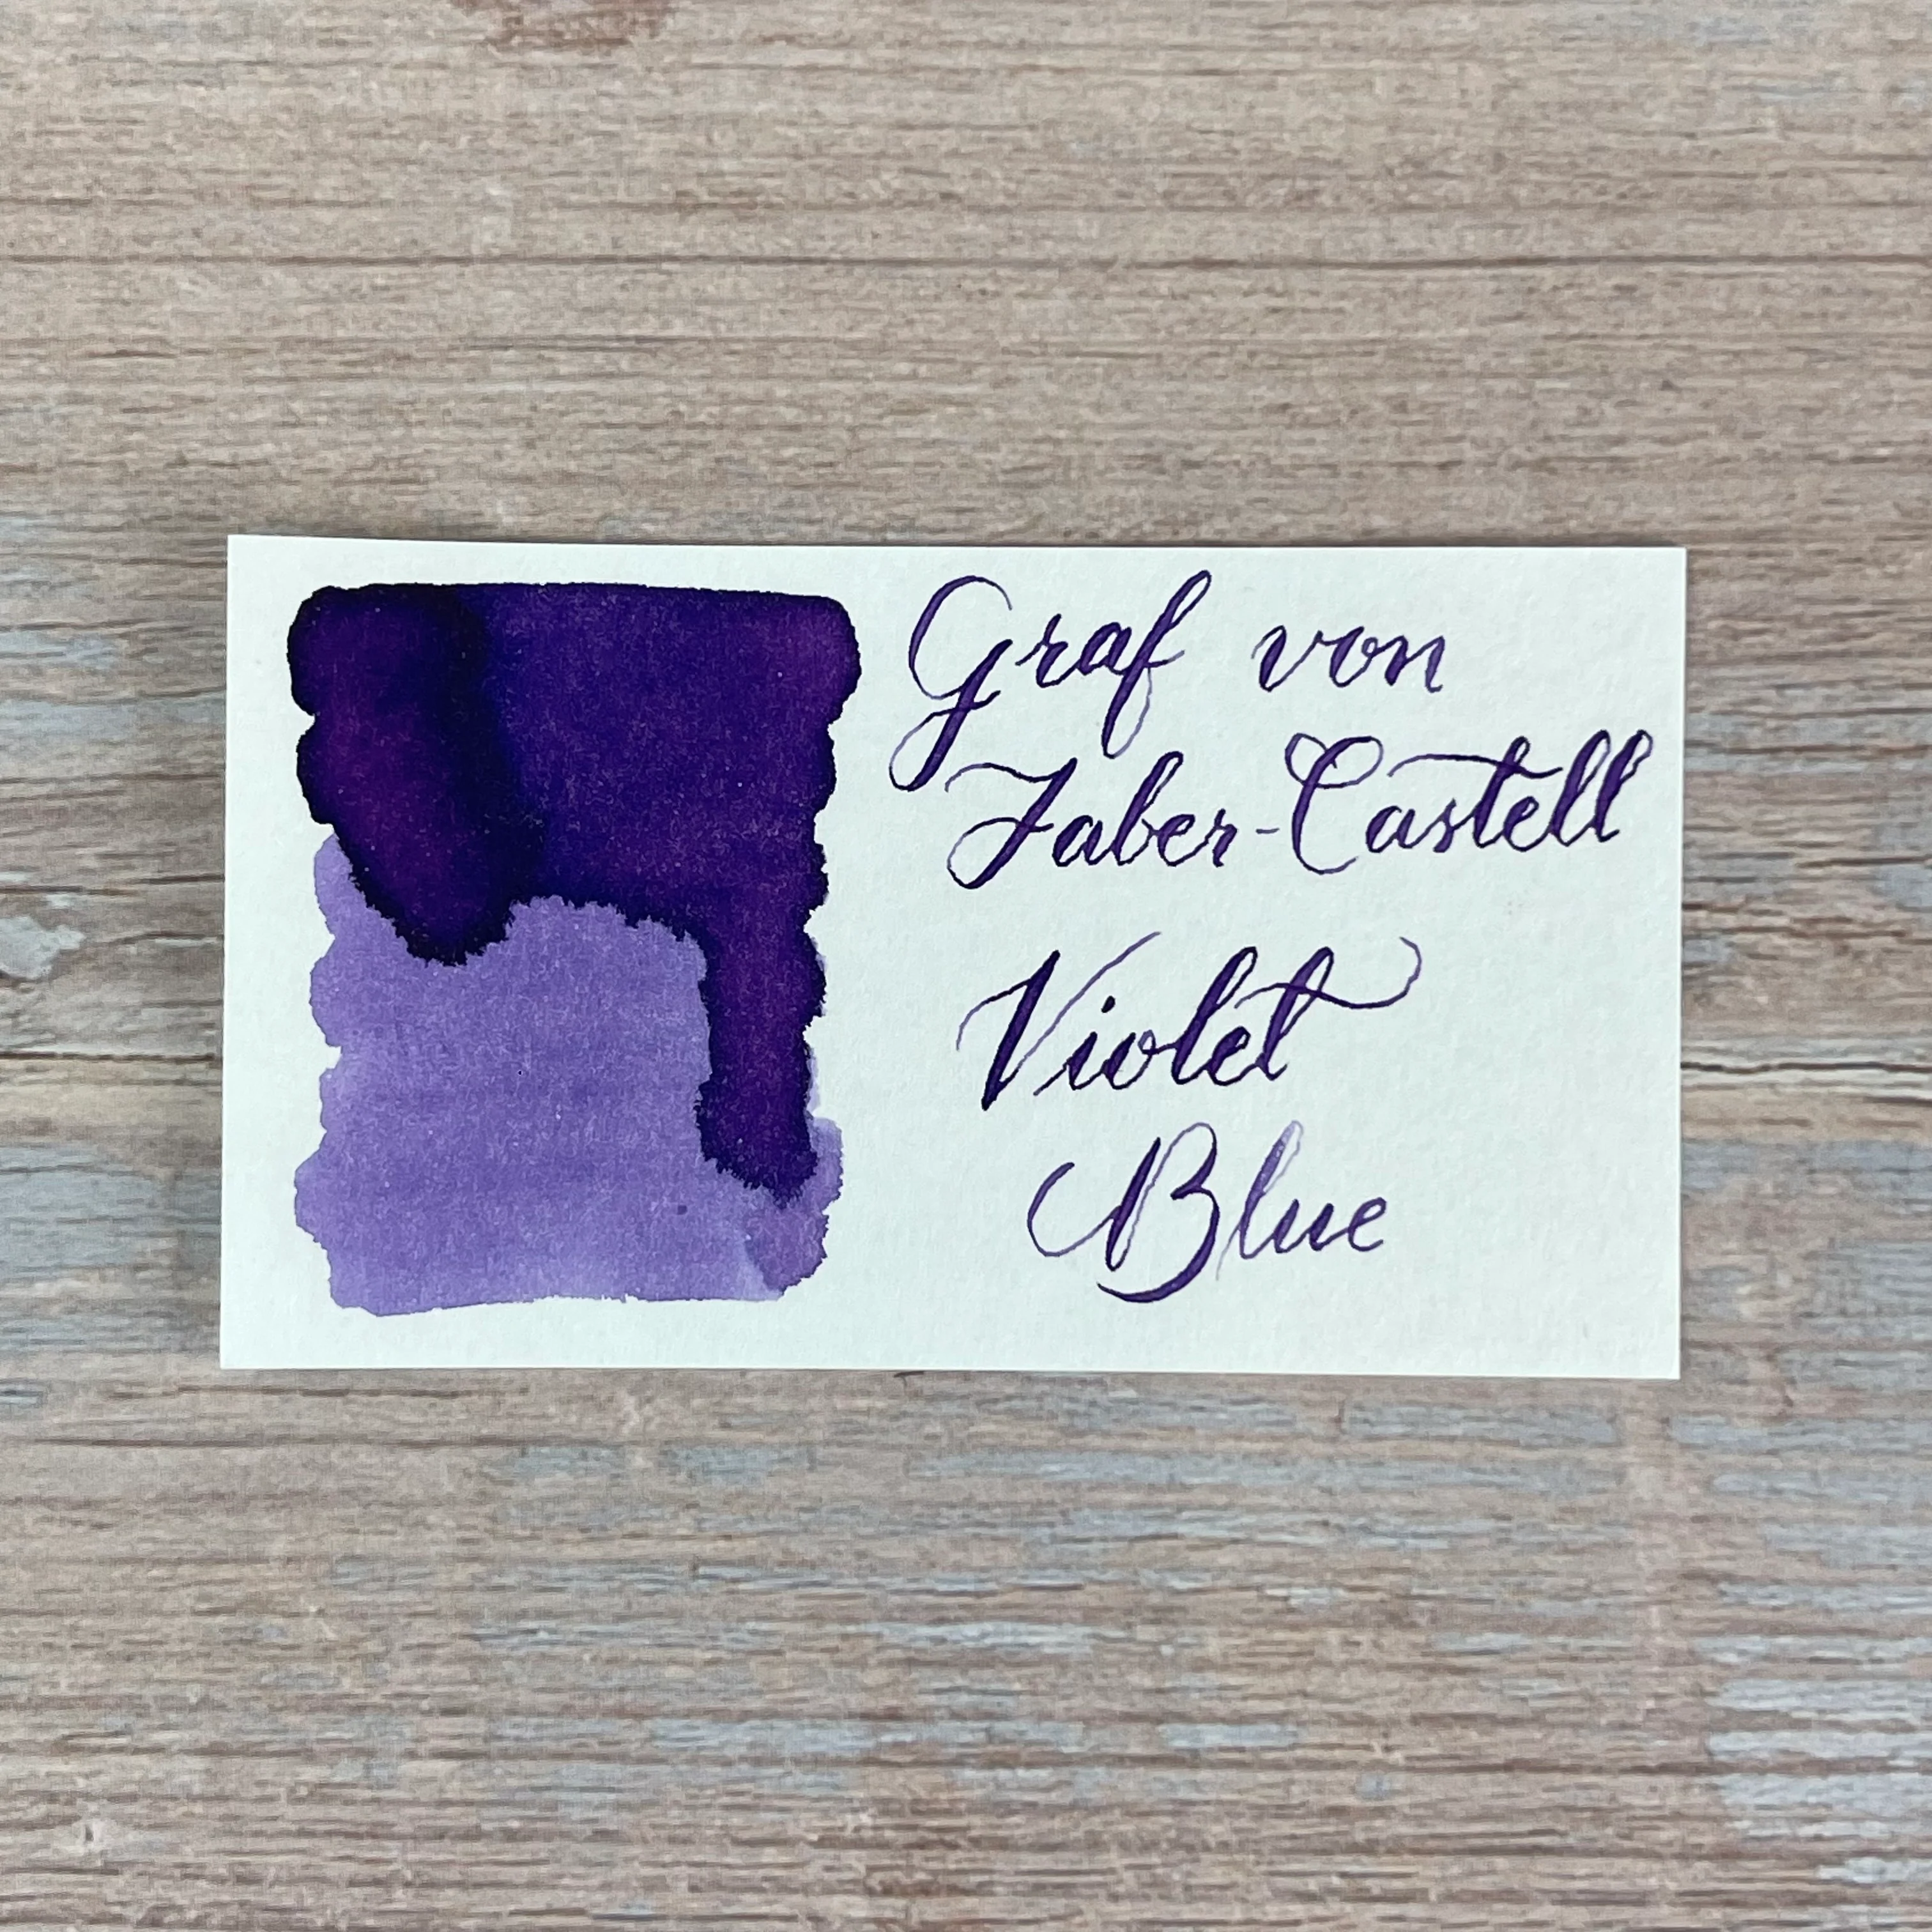 Graf von
Faber-Castell
Violet
Blue